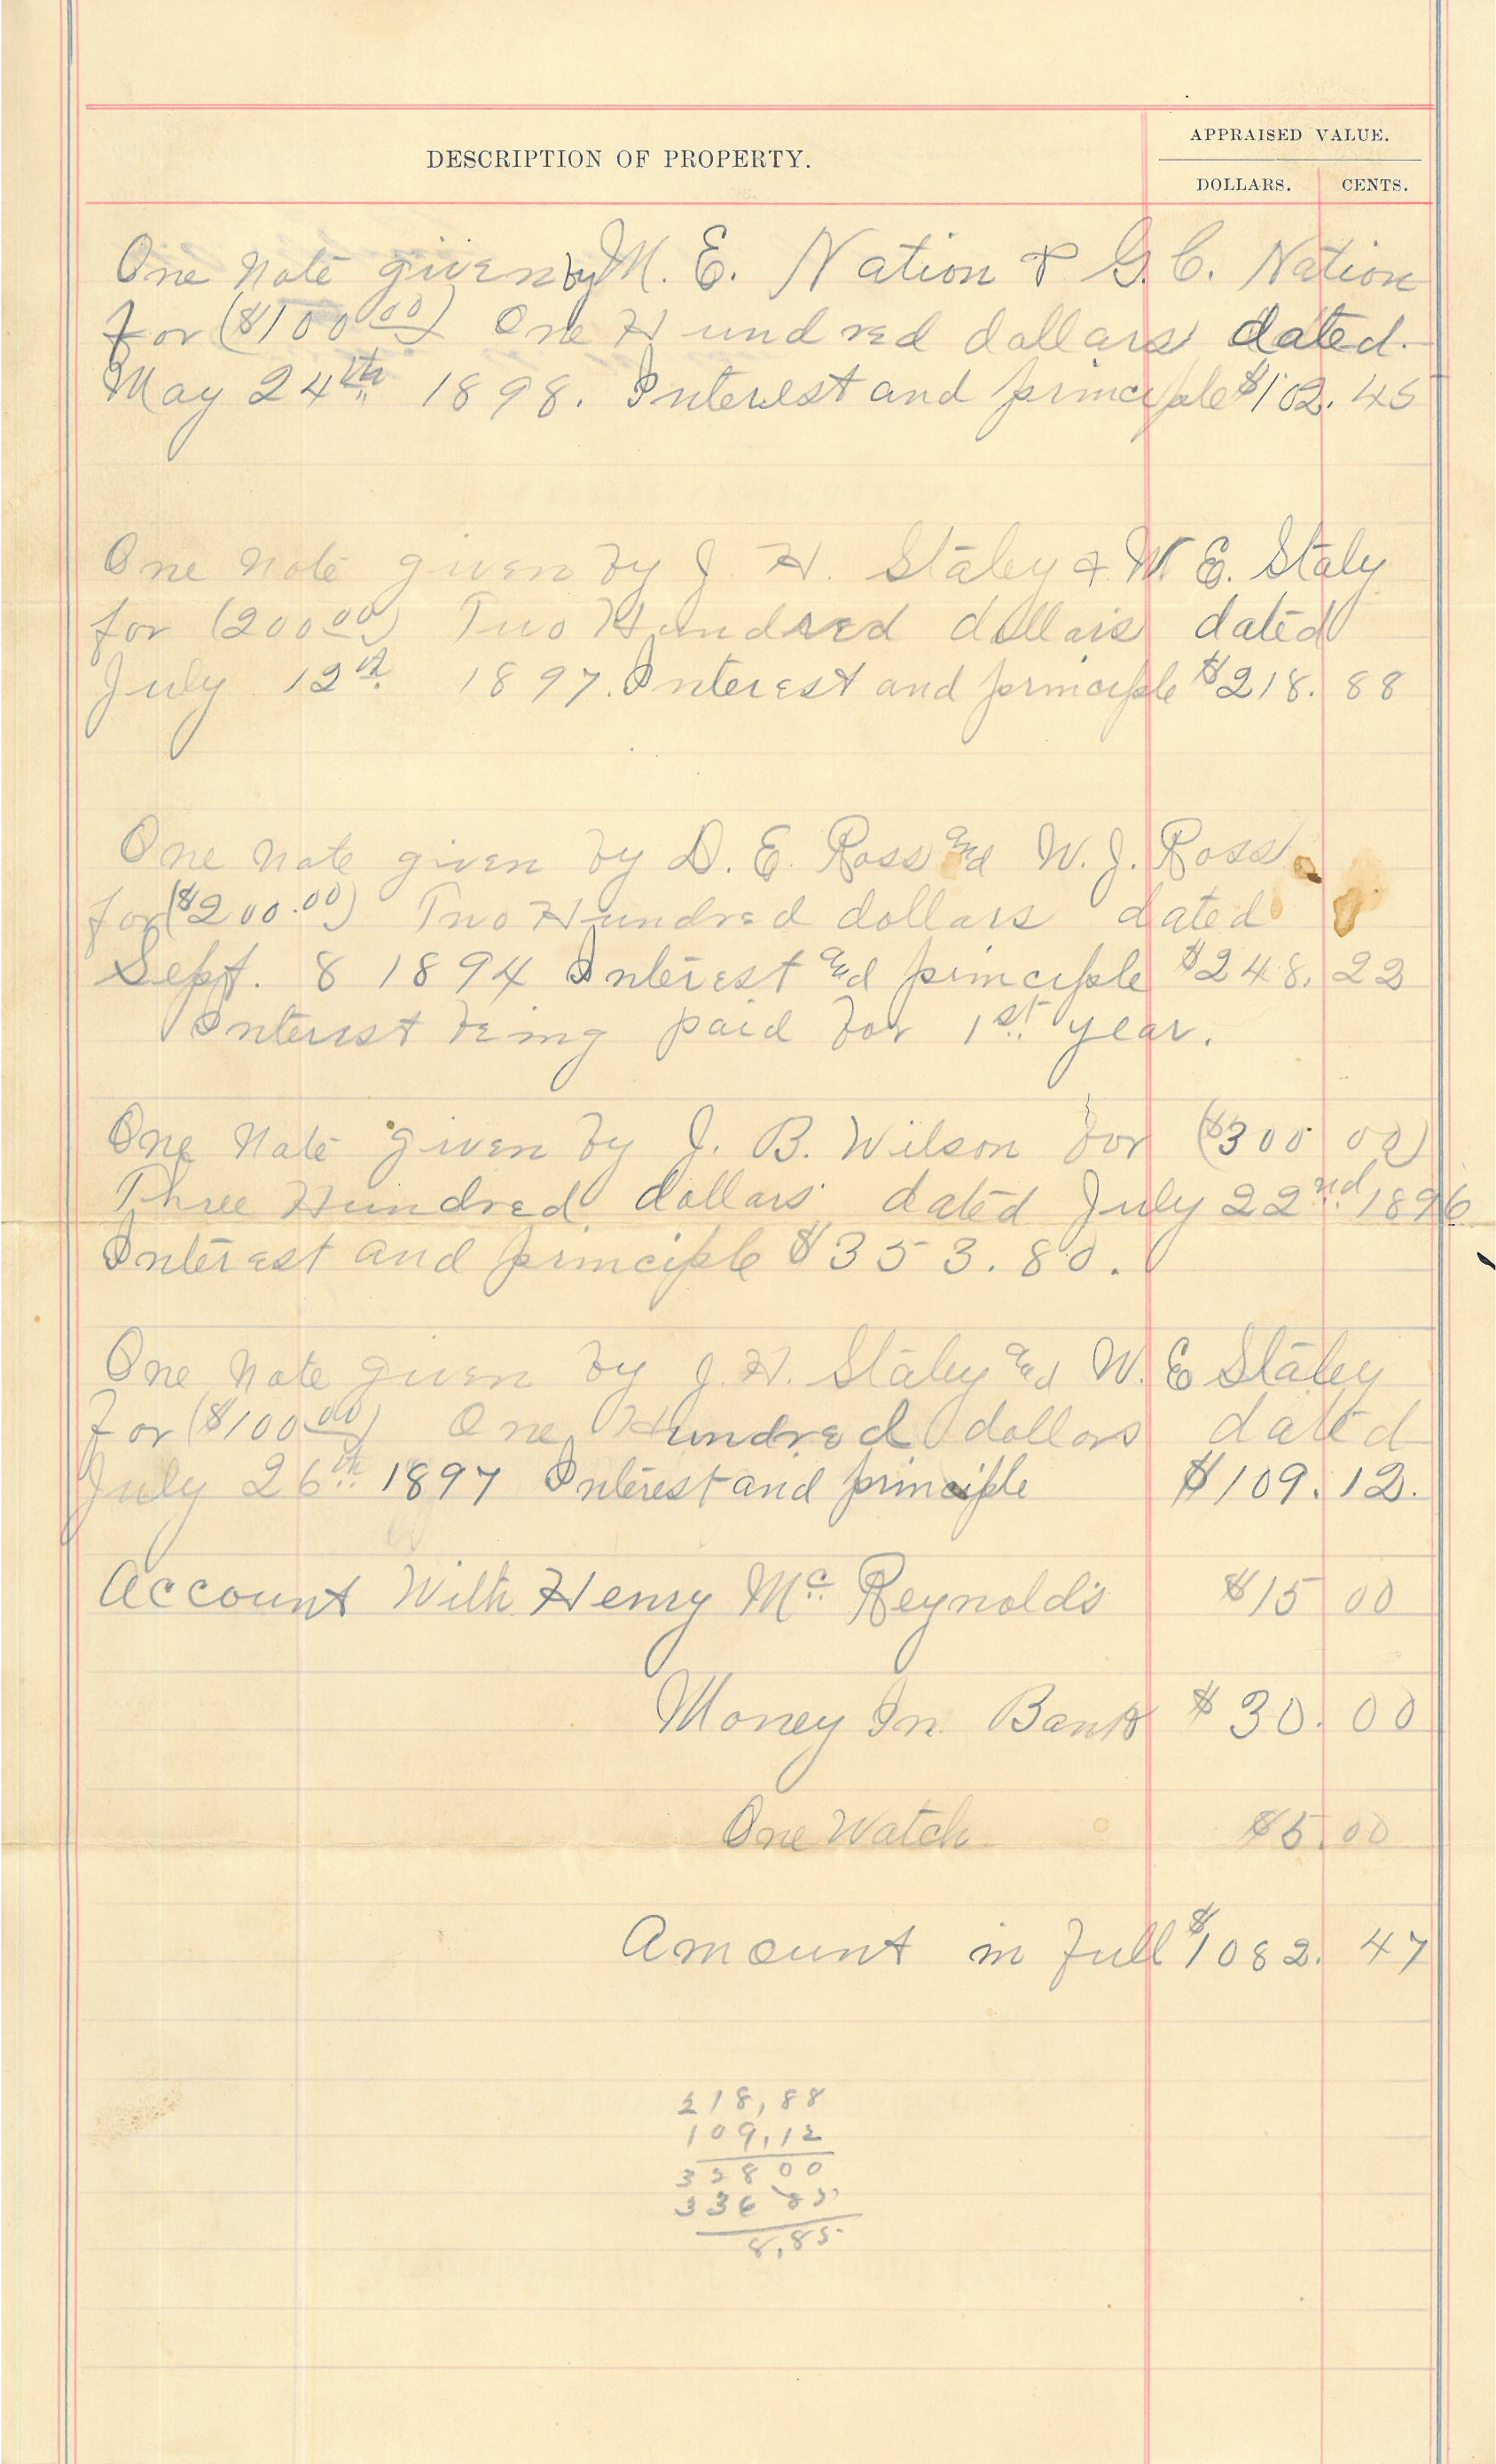 DESCRIPTION OF PROPERTY.
APPRAISED VALUE.
DOLLARS. CENTS.
One Note given by M. E. Nation & G. C. Nation
for ($100.00) One Hundred dollars dated.
May 24th 1898. Interest and principle $102.45
One note given by J. H. Staley & W. E. Staly
for (200.00) Two Hundred dollars dated
July 12th 1897. Interest and principle $218.88
One note given by D. E. Ross and W. J. Ross
for ($200.00) Two Hundred dollars dated
Sept. 8 1894 Interest and principle $248.22
Interest being paid for 1st year.
One Note given by J. B. Wilson for ($300 00)
Three Hundred dollars dated July 22nd 1896
Interest and principle $353.80.
One Note given by J. H. Staley and W. E Staley
for ($100.00) One Hundred dollars dated
July 26th 1897 Interest and principle $109.12.
Account With Henry Mc Reynolds $15 00
Money In Bank $30.00
One Watch $5.00
Amount in full $1082.47
218,88
109,12
32800
336 85
8,85